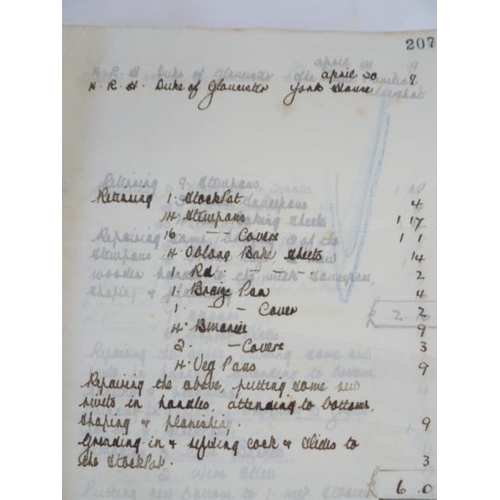 207
april 20 9
H. R. H. Duke of Gloucester York House
Retinning 1 Stockpot 4
14 Stewpans 1 17
16 - - Covers 1 1
4 Oblong Bake Sheets 14
1 Rd. - - - 2
1 Braize Pan 4
1 - - Cover 2
4 Bmarie 9
2 - Covers 3
4 Veg Pans 9
Repairing the above, putting some new
rivets in handles, attending to bottoms,
shaping & planishing. 9
Grinding in & refixing cock & slides to
the StockPot. 3
6 0